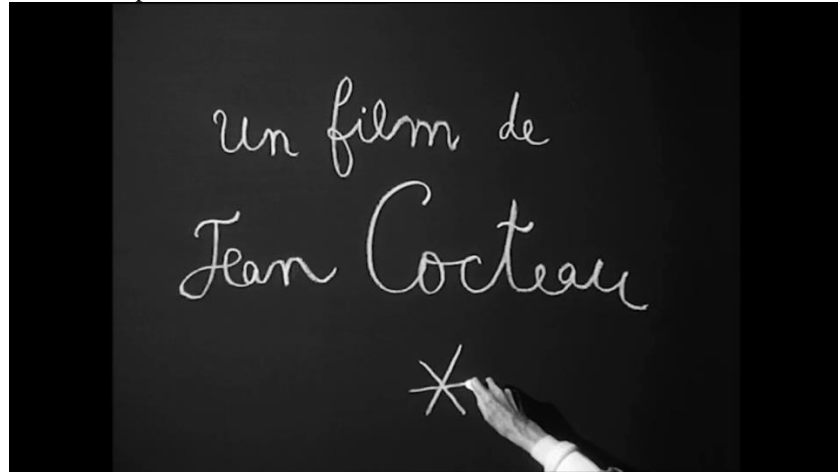 un film de
Jean Cocteau